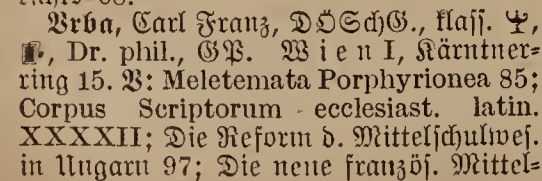 Vrba, Carl Franz, DÖSchG., klass. 
Dr. phil., GP. Wien I, Kärntner=
ring 15. V: Meletemata Porphyrionea 85;
Corpus Scriptorum ecclesiast. latin.
XXXXII; Die Reform d. Mittelschulwes.
in Ungarn 97; Die neue französ. Mittel=